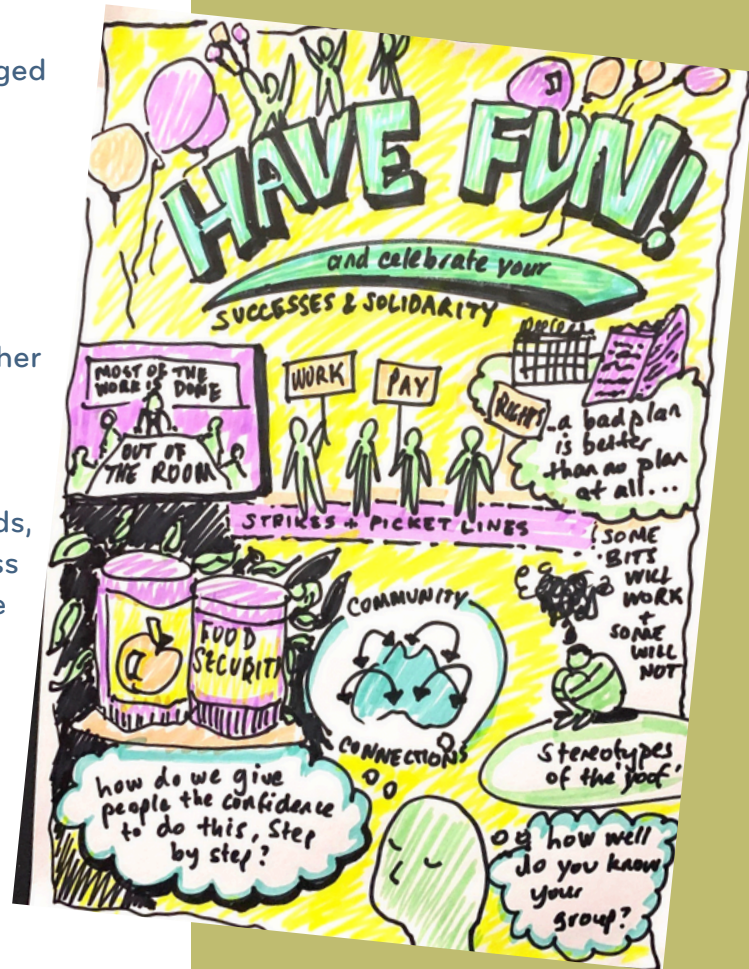 ged
her
ds,
ss
e
HAVE FUN!
and celebrate your
SUCCESSES & SOLIDARITY
MOST OF THE
WORK IS DONE
OUT OF
THE ROOM
WORK
PAY
RIGHTS
...a bad plan
is better
than no plan
at all...
STRIKES + PICKET LINES
SOME
BITS
WILL
WORK
+
SOME
WILL
NOT
FOOD
SECURITY
COMMUNITY
CONNECTIONS
Stereotypes
of the 'yoof'
how do we give
people the confidence
to do this, Step
by step?
how well
do you know
your
group?